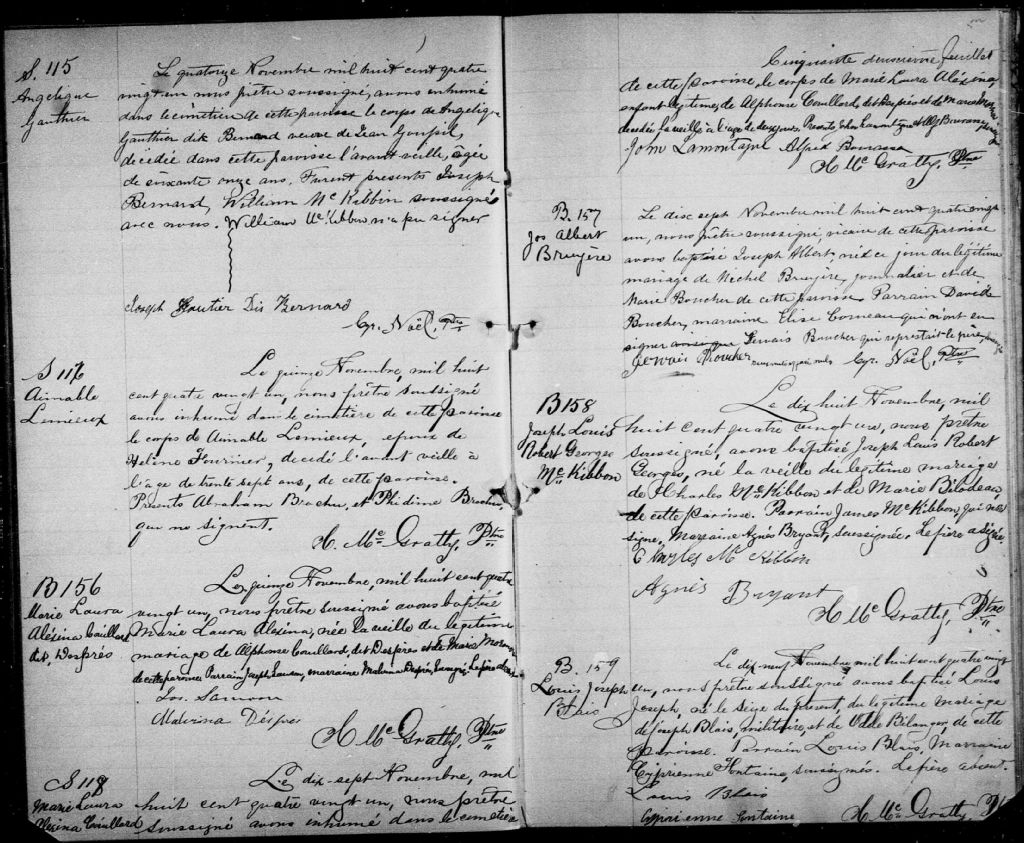 S. 115
Angélique
Gauthier
Le quatorze Novembre mil huit cent quatre
vingt un nous prêtre soussigné, avons inhumé
dans le cimetière de cette paroisse le corps de Angélique
Gauthier dit Bernard veuve de Jean Goupil,
décédée dans cette paroisse l'avant veille, âgée
de soixante onze ans. Furent presents Joseph
Bernard, William McKibbin soussignés
avec nous. William McKibbin n'a pu signer
Joseph Gautier Dis Bernard
Cyr. Noël, Ptre
S 117
Aimable
Lemieux
Le quinze Novembre, mil huit
cent quatre vingt un, nous prêtre soussigné
avons inhumé dans le cimetière de cette paroisse
le corps de Aimable Lemieux, epoux de
Heline Fournier, decédé l'avant veille à
l'âge de trente sept ans, de cette paroisse.
Présents Abraham Brochu, et Phidime Brochu,
qui ne signent.
H. McGratty, Ptre
B 156
Marie Laura
Alésina Couillard
dit Després
Le quinze Novembre, mil huit cent quatre
vingt un, nous prêtre soussigné avons baptisé
Marie Laura Alésina, née la veille du legitime
mariage de Alphonse Couillard, dit Despres et de Marie
de cette paroisse Parrain Joseph Samson, marraine Malvina Després, Le père
Jos. Samson
Malvina Déspres
H McGratty, Ptre
S 118
Marie Laura
Alésina Couillard
Le dix-sept Novembre, mil
huit cent quatre vingt un, nous prêtre
soussigné avons inhumé dans le cimetière
Cinquante deuxieme feuillet
de cette paroisse, le corps de Marie Laura Alésina,
enfant legitime, de Alphonse Couillard, dit Després et de Marie
decedée la veille à l'age de deux jours. Presents, John Lamontagne et Alf Bourassa
John Lamontagne Alfred Bourassa
H McGratty, Ptre
B. 157
Jos Albert
Bruyère
Le dix sept Novembre mil huit cent quatre vingt
un, nous prêtre soussigné, vicaire de cette paroisse
avons baptisé Joseph Albert, né ce jour du légitime
mariage de Michel Bruyère, journalier et de
Marie Boucher de cette paroisse Parrain David
Boucher, marraine Elise Comeau qui n'ont su
signer ainsi que Gervais Boucher qui représtait le père,
Gervais Boucher Cyr. Noël, Ptre
B158
Joseph Louis
Robert Georges
McKibbon
Le dix huit Novembre, mil
huit cent quatre vingt un, nous prêtre
soussigné, avons baptisé Joseph Louis Robert
Georges, né la veille du legitime mariage
de Charles McKibbon et de Marie Bilodeau,
de cette paroisse. Parrain James McKibbon, qui
signe, Marraine Agnés Bryant, soussignée. Le père a signé.
Charles McKibbon
Agnès Bryant
H McGratty, Ptre
B. 159
Louis Joseph
Blais
Le dix-neuf Novembre mil huit cent quatre vingt
un, nous prêtre soussigné avons baptisé Louis
Joseph, né le seize du present, du legitime mariage
de Joseph Blais, militaire, et de Odile Bélanger, de cette
paroisse. Parrain Louis Blais, Marraine
Cyprienne Fontaine, soussignés. Le père absent.
Louis Blais
Cyprienne Fontaine H McGratty, Pt